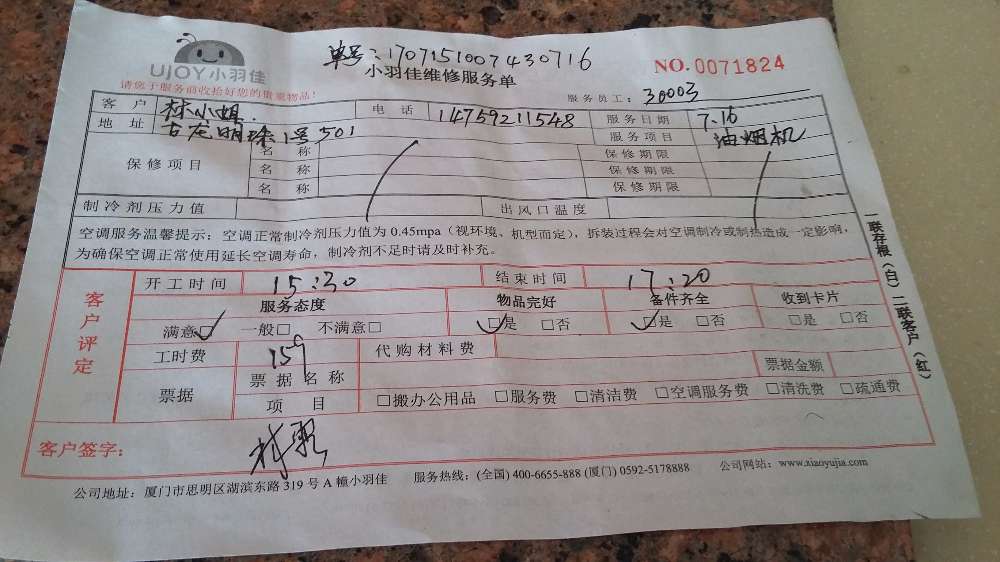 UJOY小羽佳
单号:1707151007430716
小羽佳维修服务单
NO.0071824
请您于服务前收拾好您的贵重物品!
服务员工:30003
客户 林小姐 电话 14759211548 服务日期 7.16
地址 古龙明珠1号501 服务项目 油烟机
保修项目 名称 保修期限
名称 保修期限
名称 保修期限
制冷剂压力值 出风口温度
空调服务温馨提示:空调正常制冷剂压力值为0.45mpa(视环境、机型而定),拆装过程会对空调制冷或制热造成一定影响,
为确保空调正常使用延长空调寿命,制冷剂不足时请及时补充。
客户评定
开工时间 15:30 结束时间 17:20
服务态度 物品完好 备件齐全 收到卡片
满意☑ 一般□ 不满意□ ☑是 □否 ☑是 □否 □是 □否
工时费 159 代购材料费
票据 票据名称 票据金额
项目 □搬办公用品 □服务费 □清洁费 □空调服务费 □清洗费 □疏通费
客户签字:
公司地址:厦门市思明区湖滨东路319号A幢小羽佳 服务热线:(全国)400-6655-888(厦门)0592-5178888 公司网站:www.xiaoyujia.com
一联存根(白)二联客户(红)